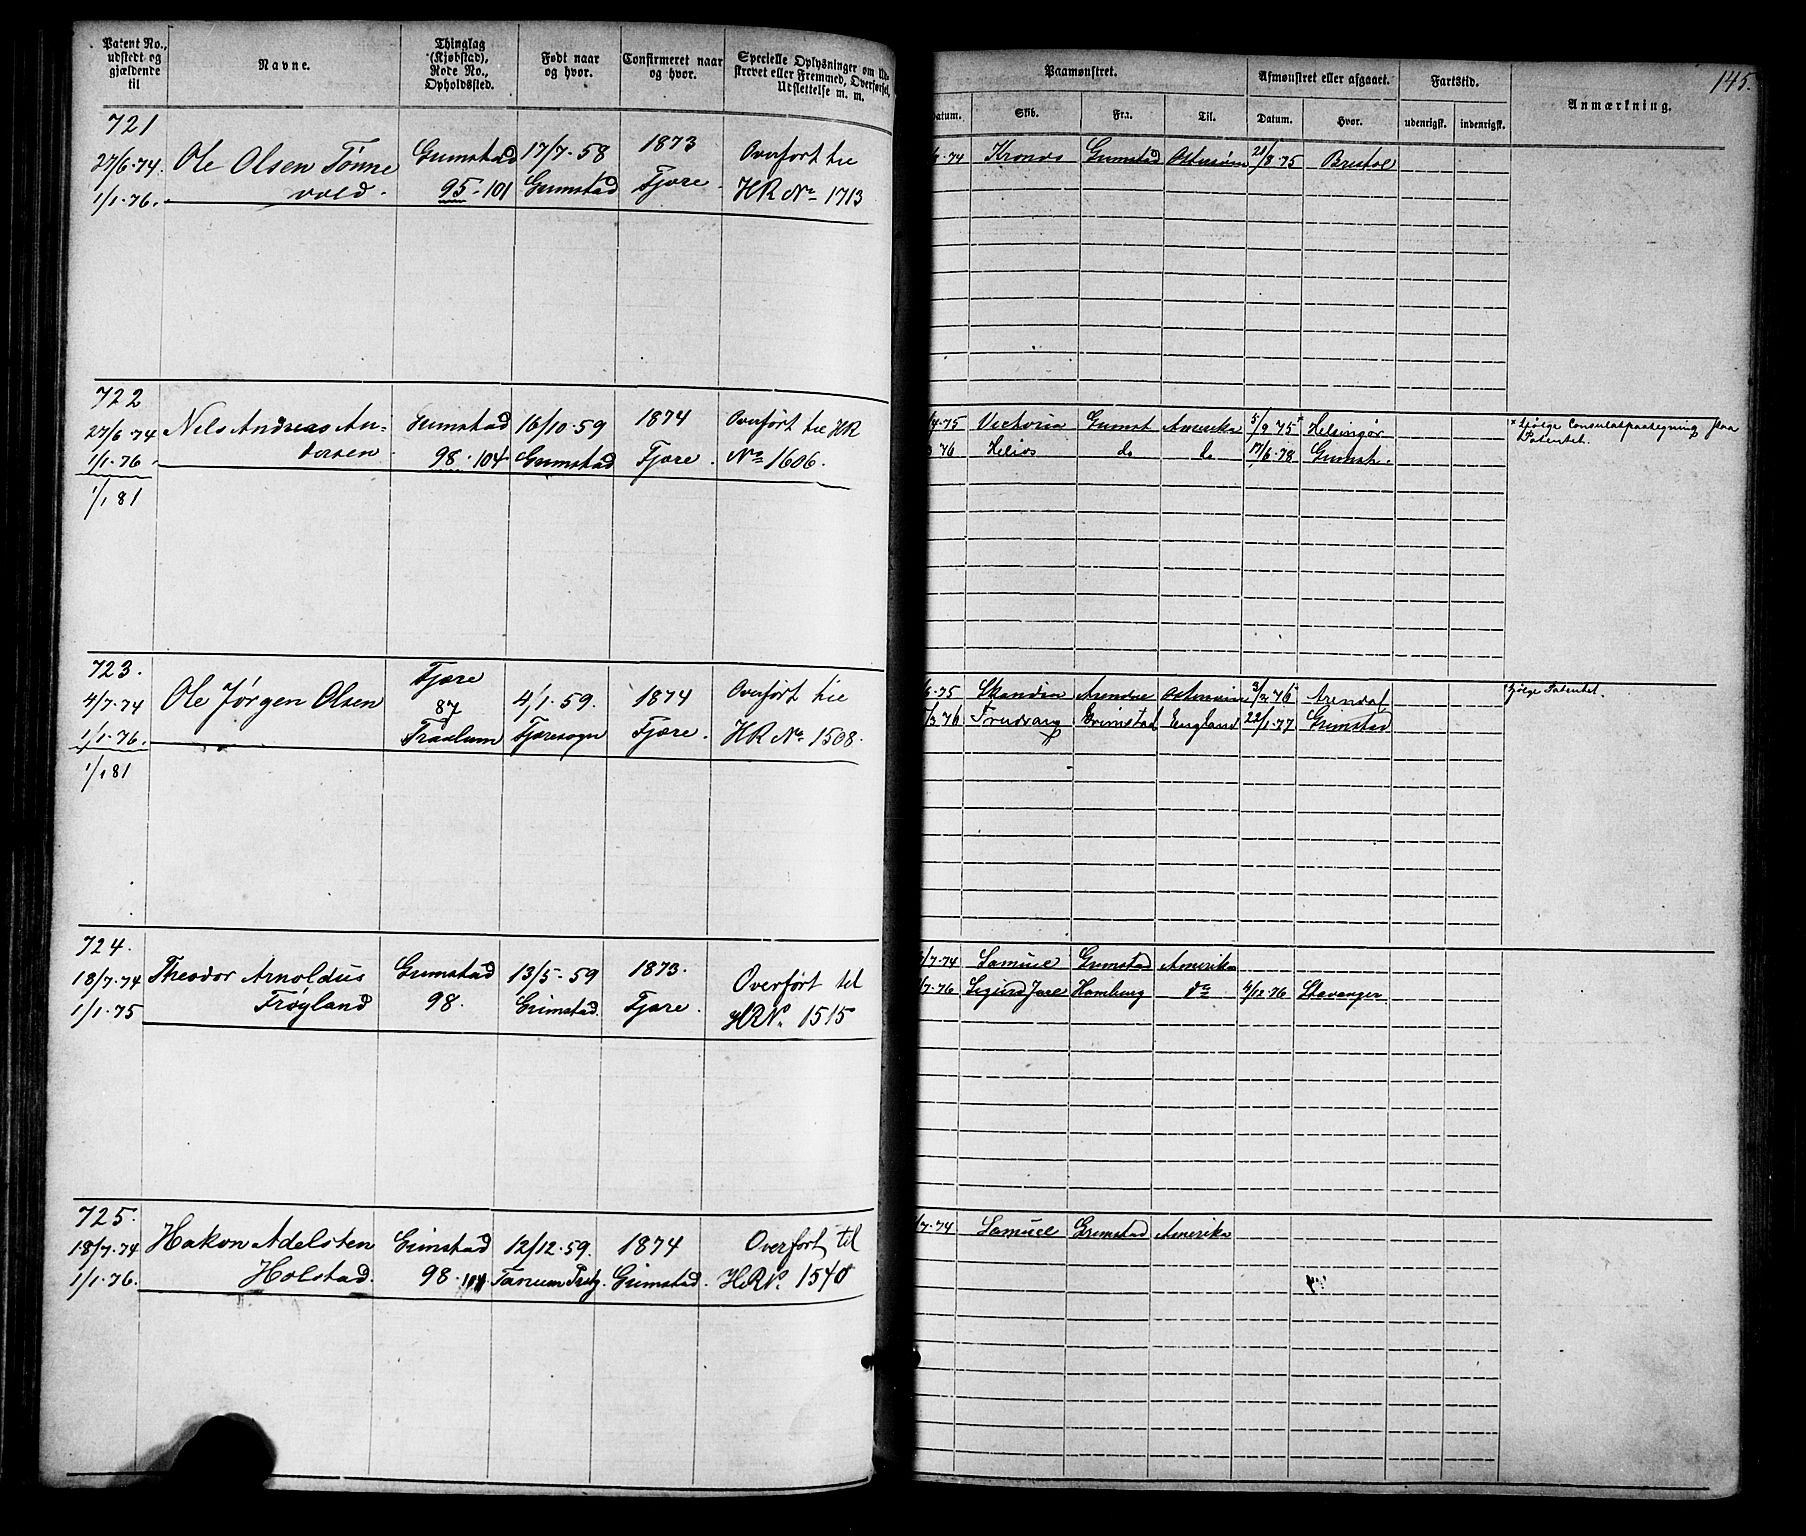 Patent No., udstedt og gjældende til
Navne.
Thinglag (Kjøbstad), Rode No., Opholdssted.
Født naar og hvor.
Confirmeret naar og hvor.
Specielle Oplysninger om
strevet eller Fremmed, Overførsel,
Udslettelse m. m.
Paamønstret.
Afmønstret eller afgaaet.
Fartstid.
Anmærkning.
145.
Datum.
Skib.
Fra.
Til.
Datum.
Hvor.
udenrigsk.
indenrigsk.
721
27/6.74. Ole Olsen Tønne Grimstad 17/7.58 1873 Overført til
1/1.76. vold. 95.101 Grimstad Fjære. HR No 1713
74 Kronos Grimstad Østersøen 21/8.75 Bristol
722
27/6.74 Nils Andreas An- Grimstad 16/10.59 1874 Overført til HR
1/1.76. dersen 98.104 Grimstad Fjære. No 1606.
1/1 81
75 Victoria Grimst Amerika 5/9.75 Helsingør * ifølge Consulatpaategning paa
Patentet.
76 Helios do do 17/6.78 Grimst.
723.
4/7.74 Ole Jørgen Olsen Fjære 87 4/1.59. 1874 Overført til
1/1.76. Traalum Fjæresogn Fjære. HR No. 1508.
1/1 81
75 Skandia Arendal Østersøen 3/2.76 Arendal ifølge Patentet.
76 Trudvang Grimstad England 22/1.77 Grimstad
724.
18/7.74 Theodor Arnoldus Grimstad 13/5.59 1873. Overført til
1/1.75 Frøyland 98. Grimstad. Fjære. HRN. 1515
/7.74 Samuel Grimstad Amerika
/7.76 Sigurd Jare Hamburg do 4/12.76 Stavanger
725.
18/7.74 Hakon Adelsten Grimstad 12/12.59. 1874 Overført til
1/1.76. Holstad. 98.104 Tanum Grimstad. HRN. 1540
/7.74 Samuel Grimstad Amerika